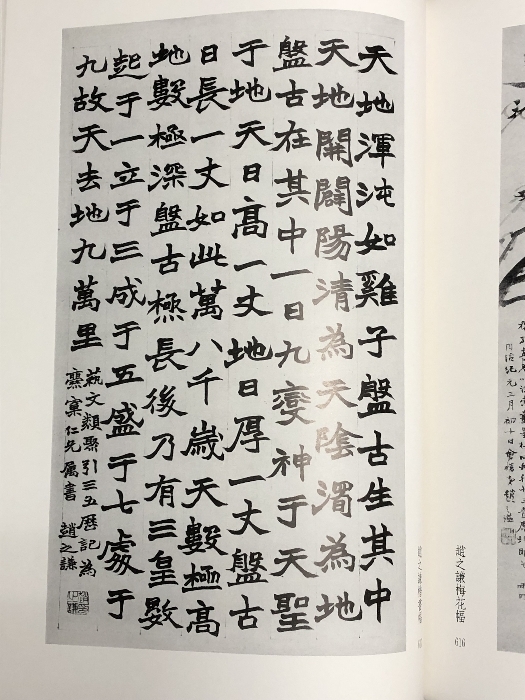 天地渾沌如雞子盤古生其中
天地開闢陽清為天陰濁為地
盤古在其中一日九變神于天聖
于地天日高一丈地日厚一丈盤古
日長一丈如此萬八千歲天數極高
地數極深盤古極長後乃有三皇數
起于一立于三成于五盛于七處于
九故天去地九萬里
文類聚引三五曆記為
仁兄屬書 趙之謙
趙之謙梅花幅 616